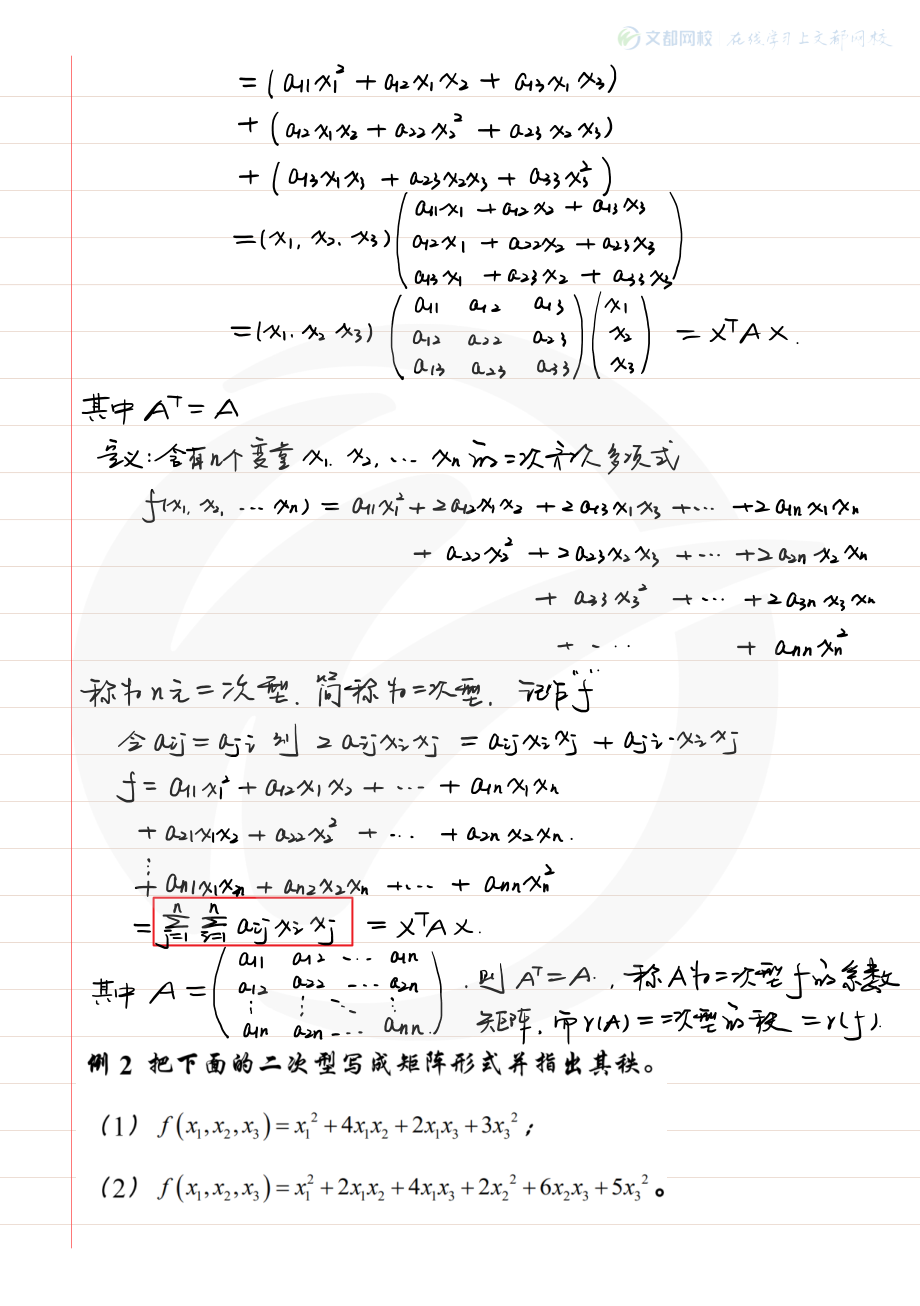 文都网校 在线学习上文都网校
=(a₁₁x₁² + a₁₂x₁x₂ + a₁₃x₁x₃)
+ (a₁₂x₁x₂ + a₂₂x₂² + a₂₃x₂x₃)
+ (a₁₃x₁x₃ + a₂₃x₂x₃ + a₃₃x₃²)
a₁₁x₁ + a₁₂x₂ + a₁₃x₃
=(x₁, x₂, x₃) a₁₂x₁ + a₂₂x₂ + a₂₃x₃
a₁₃x₁ + a₂₃x₂ + a₃₃x₃
a₁₁ a₁₂ a₁₃ x₁
=(x₁, x₂ x₃) a₁₂ a₂₂ a₂₃ x₂ = XᵀAX.
a₁₃ a₂₃ a₃₃ x₃
其中 Aᵀ = A
定义:含有n个变量 x₁, x₂, … xₙ 的二次齐次多项式
f(x₁, x₂, … xₙ) = a₁₁x₁² + 2a₁₂x₁x₂ + 2a₁₃x₁x₃ + … + 2a₁ₙx₁xₙ
+ a₂₂x₂² + 2a₂₃x₂x₃ + … + 2a₂ₙx₂xₙ
+ a₃₃x₃² + … + 2a₃ₙx₃xₙ
+ … + aₙₙxₙ²
称为n元二次型, 简称为二次型, 记作 f
令 aᵢⱼ = aⱼᵢ 则 2aᵢⱼxᵢxⱼ = aᵢⱼxᵢxⱼ + aⱼᵢ·xᵢxⱼ
f = a₁₁x₁² + a₁₂x₁x₂ + … + a₁ₙx₁xₙ
+ a₂₁x₁x₂ + a₂₂x₂² + … + a₂ₙx₂xₙ.
⋮
+ aₙ₁x₁xₙ + aₙ₂x₂xₙ + … + aₙₙxₙ²
= ∑ⱼ₌₁ⁿ ∑ᵢ₌₁ⁿ aᵢⱼxᵢxⱼ = XᵀAX.
a₁₁ a₁₂ … a₁ₙ
其中 A = a₁₂ a₂₂ … a₂ₙ , 则 Aᵀ = A, 称A为二次型f的系数
⋮ ⋮ ⋱ ⋮
a₁ₙ a₂ₙ … aₙₙ 矩阵, 而r(A) = 二次型的秩 = r(f).
例 2 把下面的二次型写成矩阵形式并指出其秩。
（1） f(x₁,x₂,x₃)=x₁²+4x₁x₂+2x₁x₃+3x₃²；
（2） f(x₁,x₂,x₃)=x₁²+2x₁x₂+4x₁x₃+2x₂²+6x₂x₃+5x₃²。